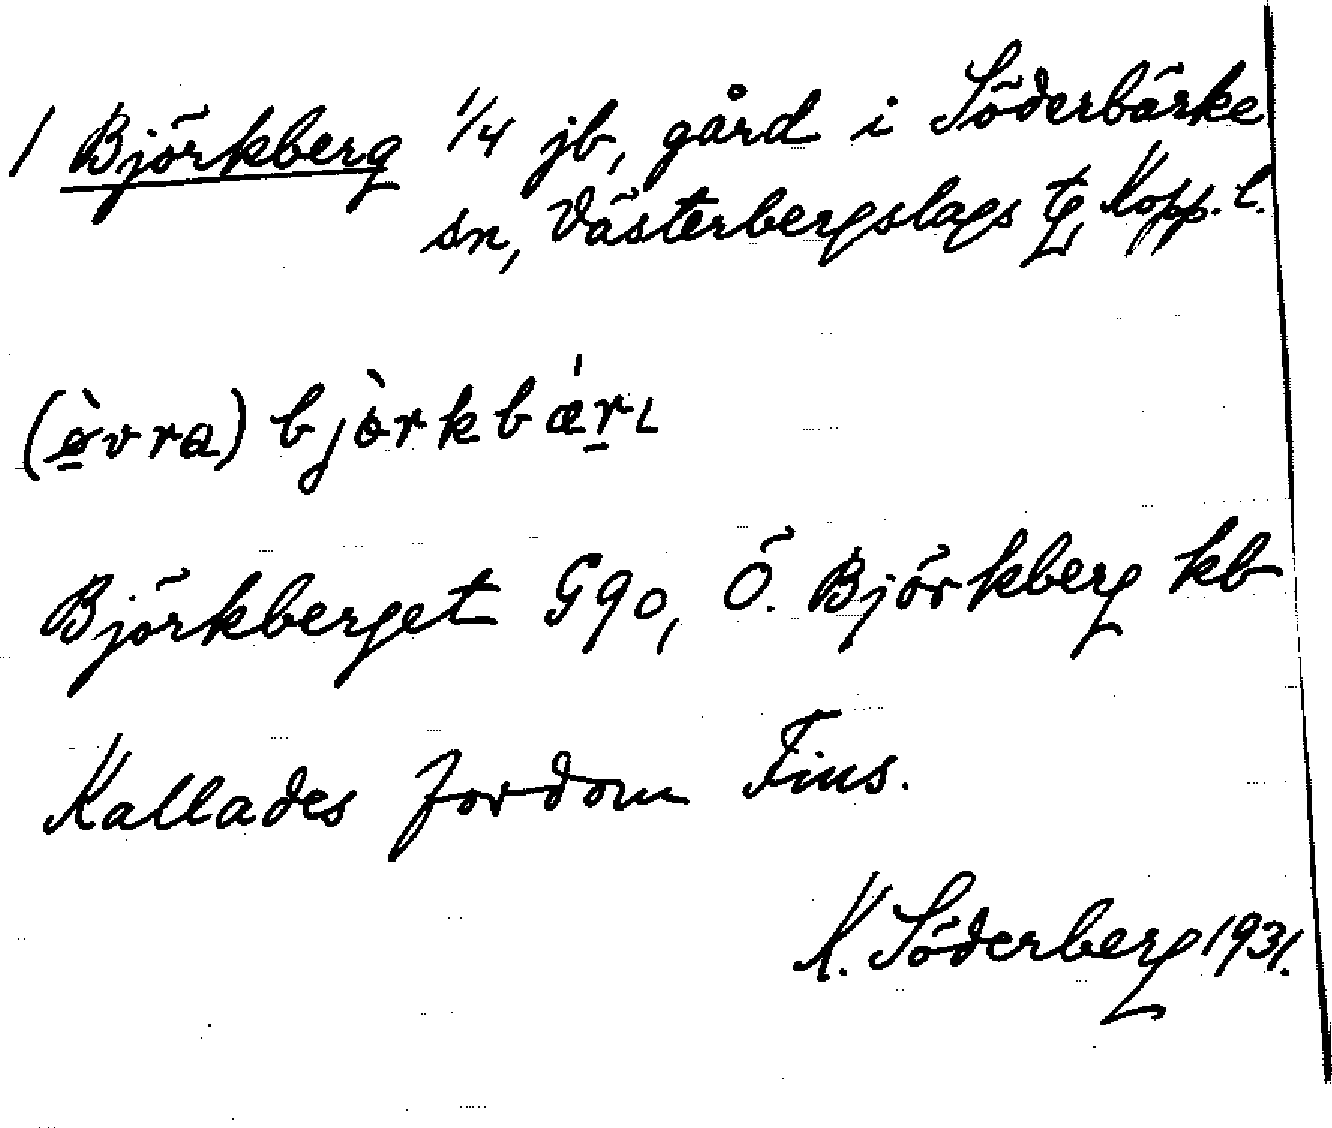 1 Björkberg 1/4 jb, gård i Söderbärke
sn, Västerbergslags tg, Kopp. l.
(ø̀vra) bjò̵rkbǽrɩ
Björkberget G90, Ö. Björkberg kb
Kallades fordom Fius.
K. Söderberg 1931.